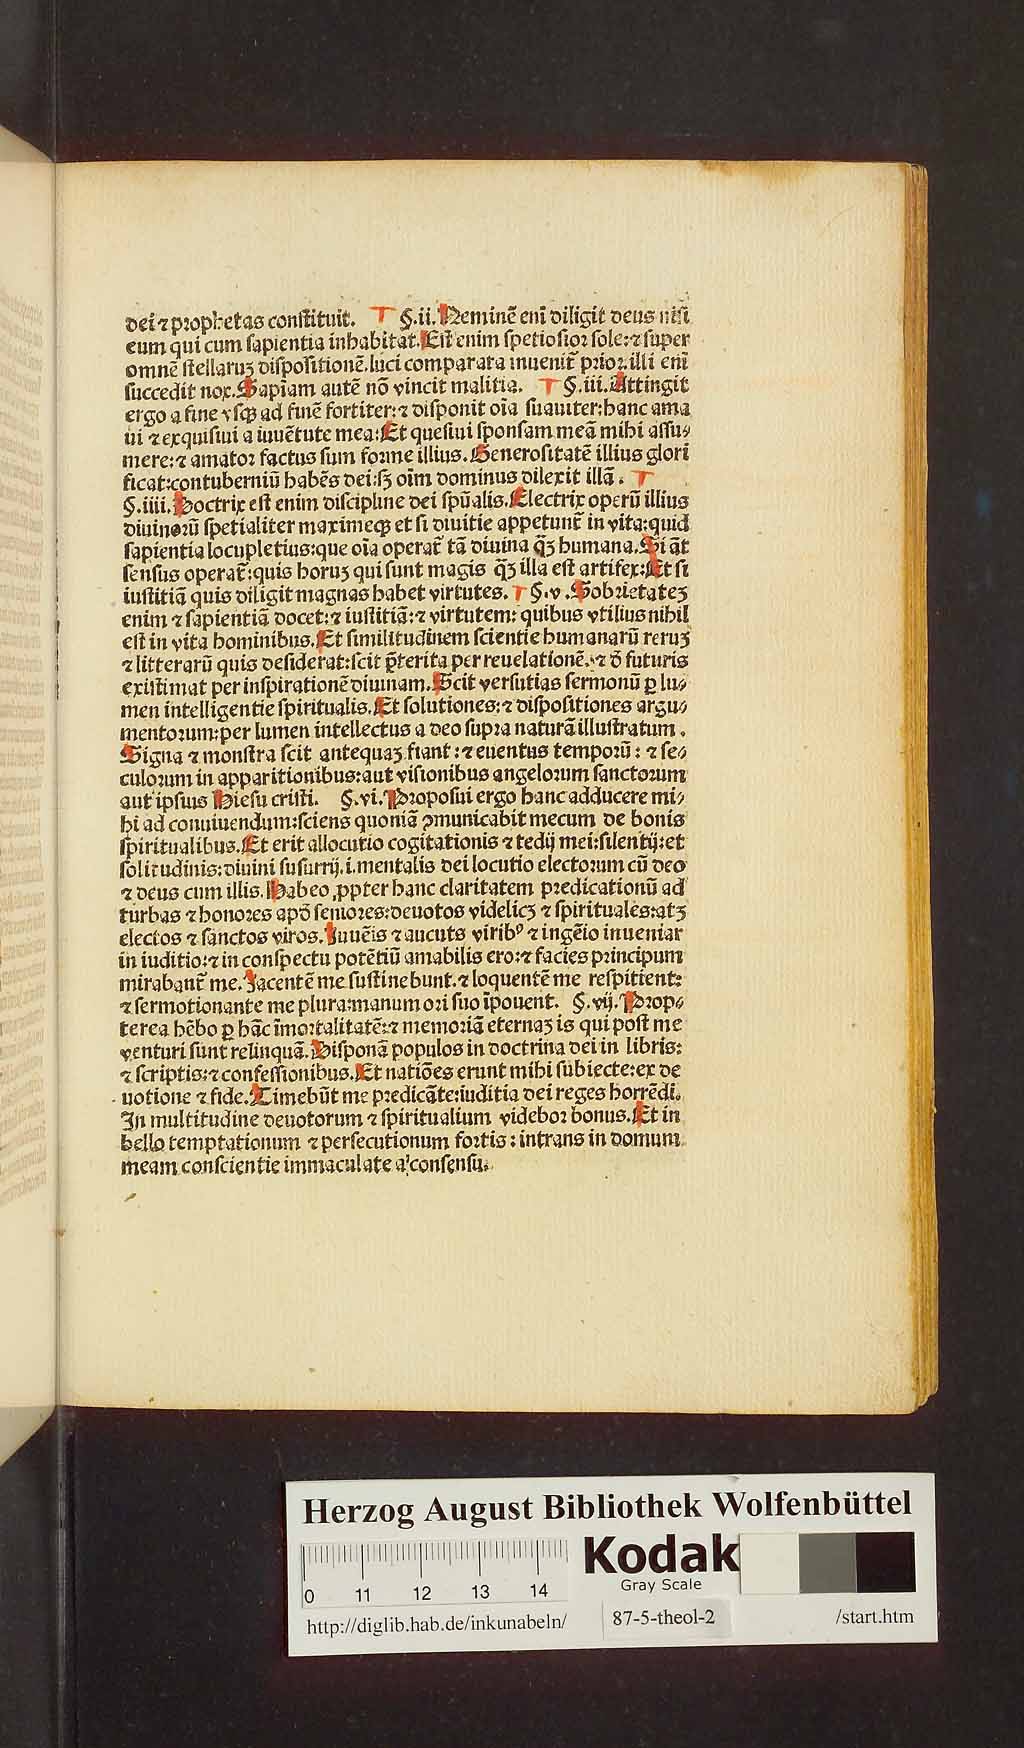 dei ⁊ prophetas constituit. §.ii. Neminē eni diligit deus nisi
eum qui cum sapientia inhabitat. Est enim spetiosior sole: ⁊ super
omnē stellaruꝫ dispositionē. luci comparata inuenit̄ prior. illi eni
succedit nox. Sapiam autē nō vincit malitia. §.iii. Attingit
ergo a fine vsqꝫ ad finē fortiter: ⁊ disponit oīa suauiter: hanc ama
ui ⁊ exquisiui a iuuētute mea: Et quesiui sponsam meā mihi assu⸗
mere: ⁊ amator factus sum forme illius. Generositatē illius glori
ficat: contuberniū habēs dei: sꝫ oīm dominus dilexit illā.
§.iiii. Doctrix est enim discipline dei spūalis. Electrix operū illius
diuinorū spetialiter maximeqꝫ et si diuitie appetunt̄ in vita: quid
sapientia locupletius: que oīa operat̄ tā diuina q̄ꝫ humana. Si āt
sensus operat̄: quis horuꝫ qui sunt magis q̄ꝫ illa est artifex: Et si
iustitiā quis diligit magnas habet virtutes. §.v. Sobrietateꝫ
enim ⁊ sapientiā docet: ⁊ iustitiā: ⁊ virtutem: quibus vtilius nihil
est in vita hominibus. Et similitudinem scientie humanarū reruꝫ
⁊ litterarū quis desiderat: scit p̄terita per reuelationē. ⁊ d̄ futuris
existimat per inspirationē diuinam. Scit versutias sermonū ꝑ lu⸗
men intelligentie spiritualis. Et solutiones: ⁊ dispositiones argu⸗
mentorum: per lumen intellectus a deo supra naturā illustratum.
Signa ⁊ monstra scit antequaꝫ fiant: ⁊ euentus temporū: ⁊ se⸗
culorum in apparitionibus: aut visionibus angelorum sanctorum
aut ipsius Hiesu cristi. §.vi. Proposui ergo hanc adducere mi⸗
hi ad conuiuendum: sciens quoniā ꝯmunicabit mecum de bonis
spiritualibus. Et erit allocutio cogitationis ⁊ tedij mei: silentij: et
solitudinis: diuini susurrij. i. mentalis dei locutio electorum cū deo
⁊ deus cum illis. Habeo ꝓpter hanc claritatem predicationū ad
turbas ⁊ honores apd̄ seniores: deuotos videlicꝫ ⁊ spirituales: atꝫ
electos ⁊ sanctos viros. Iuuēis ⁊ aucuts viribꝰ ⁊ ingēio inueniar
in iuditio: ⁊ in conspectu potētiū amabilis ero: ⁊ facies principum
mirabant̄ me. Jacentē me sustinebunt. ⁊ loquentē me respitient:
⁊ sermotionante me plura: manum ori suo īponent. §.vij. Prop⸗
terea hēbo ꝑ hāc īmortalitatē: ⁊ memoriā eternaꝫ is qui post me
venturi sunt relinquā. Disponā populos in doctrina dei in libris:
⁊ scriptis: ⁊ confessionibus. Et natiōes erunt mihi subiecte: ex de
uotione ⁊ fide. Timebūt me predicāte: iuditia dei reges horrēdi.
In multitudine deuotorum ⁊ spiritualium videbor bonus. Et in
bello temptationum ⁊ persecutionum fortis: intrans in domum
meam conscientie immaculate a consensu.
Herzog August Bibliothek Wolfenbüttel
Kodak
Gray Scale
0 11 12 13 14
http://diglib.hab.de/inkunabeln/ 87-5-theol-2 /start.htm